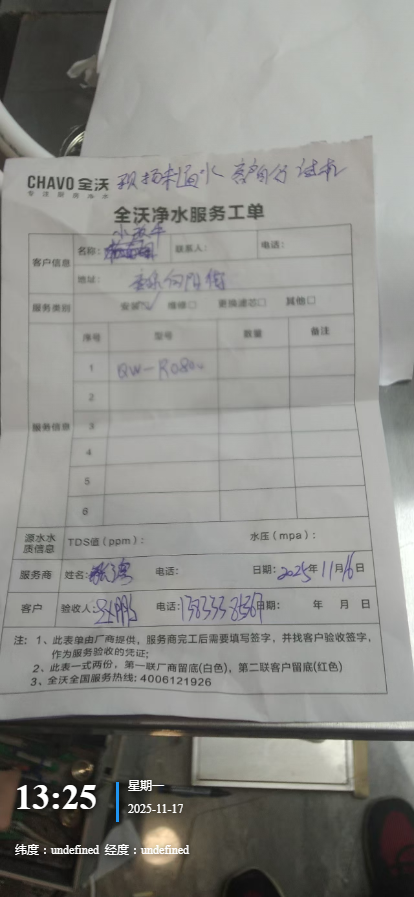 CHAVO 全沃 现场未通水 客户自行试机
专注厨房净水
全沃净水服务工单
客户信息 名称: 联系人: 电话:
地址: 向阳街
服务类别 安装☑ 维修□ 更换滤芯□ 其他□
服务信息 序号 型号 数量 备注
1 QW-RO800
2
3
4
5
6
源水水质信息 TDS值(ppm): 水压(mpa):
服务商 姓名: 电话: 日期: 2025年11月16日
客户 验收人: 电话: 日期: 年 月 日
注: 1、此表单由厂商提供、服务商完工后需要填写签字,并找客户验收签字,
作为服务验收的凭证;
2、此表一式两份,第一联厂商留底(白色),第二联客户留底(红色)
3、全沃全国服务热线: 4006121926
13:25
星期一
2025-11-17
纬度:undefined 经度:undefined